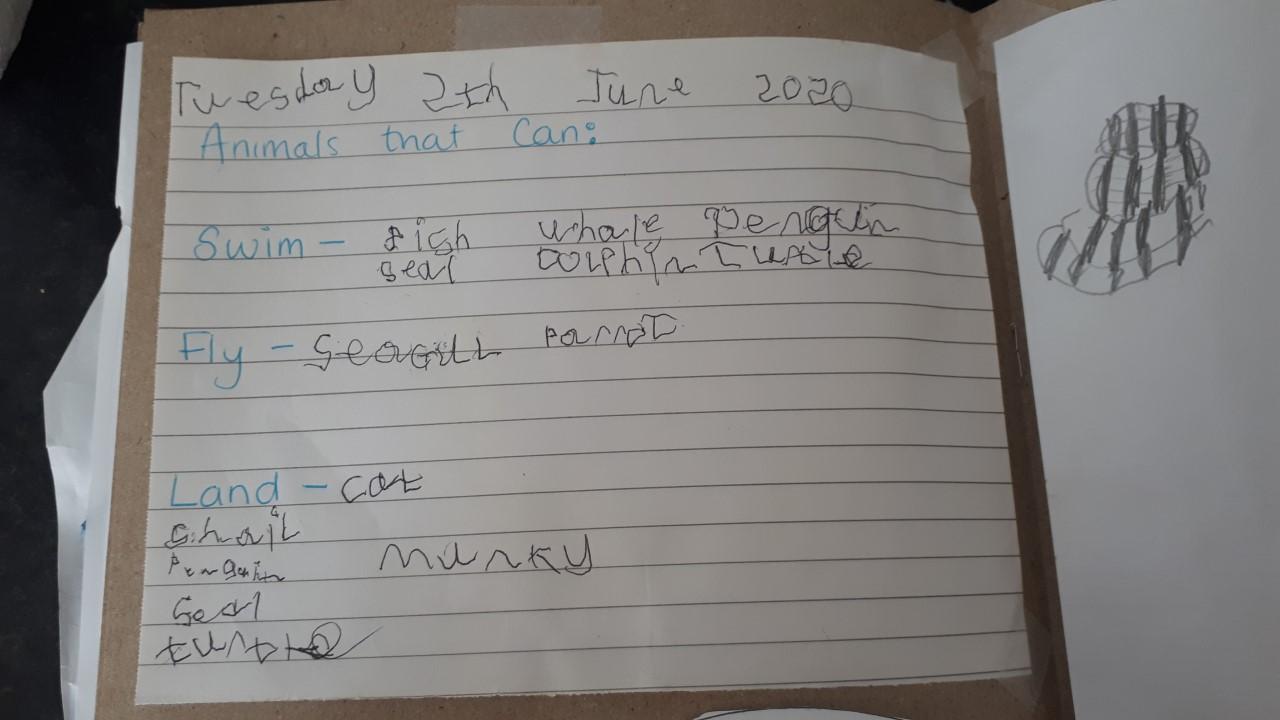 Tuesday 2th June 2020
Animals that can:
Swim - fish whale Penguin
seal dolphin Turtle
Fly - Seagull Parrot
Land - cat
snail
Penguin munky
Seal
turtle